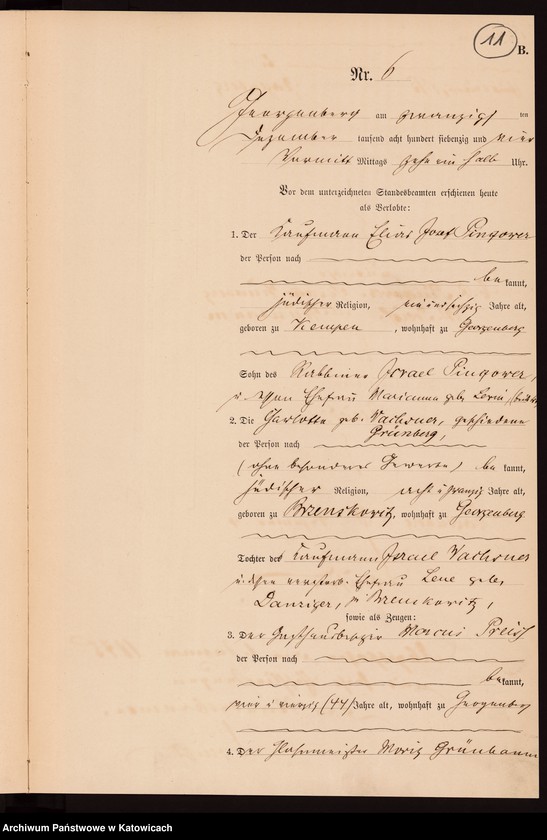 11
B.
Nr. 6
Georgenberg am zwanzigsten
Dezember tausend acht hundert siebenzig und vier
Vormittags zehn ein halb Uhr.
Vor dem unterzeichneten Standesbeamten erschienen heute
als Verlobte:
1. Der Kaufmann Elias Josef Pingower
der Person nach
bekannt,
jüdischer Religion, Jahre alt,
geboren zu Kempen, wohnhaft zu Georgenberg
Sohn des Rabbiner Israel Pingower,
u. dessen Ehefrau Marianna geb. Levin
2. Die Charlotte geb. Wachsner, geschiedene
Grünberg,
der Person nach
(ohne besonderes Gewerbe) bekannt,
jüdischer Religion, acht u. zwanzig Jahre alt,
geboren zu Brzenskowitz, wohnhaft zu Georgenberg
Tochter des Kaufmann Israel Wachsner
u. dessen verstorb. Ehefrau Lene geb.
Danziger, zu Brzenskowitz,
sowie als Zeugen:
3. Der Gasthausbesitzer Marcus Preiss
der Person nach
bekannt,
vier u. vierzig (44) Jahre alt, wohnhaft zu Georgenberg
4. Der Moritz Grünbaum
Archiwum Państwowe w Katowicach